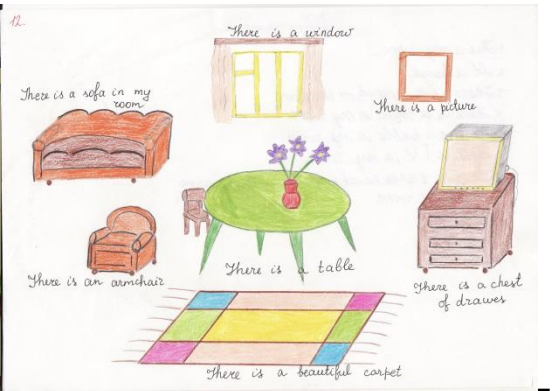 12.
There is a window
There is a sofa in my
room
There is a picture
There is an armchair
There is a table
There is a chest
of drawes
There is a beautiful carpet